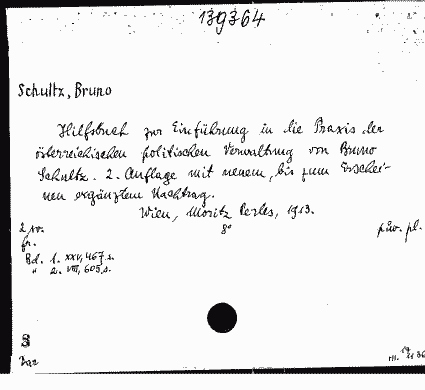 139364
Schultz, Bruno
Hilfsbuch zur Einführung in die Praxis der
österreichischen politischen Verwaltung von Bruno
Schultz. 2. Auflage mit neuem, bis zum Erschei-
nen ergänztem Nachtrag.
Wien, Moritz Perles, 1913.
2 sv. 8° pův. pl.
fr.
Bd. 1. XXV, 467 s.
" 2. VIII, 605 s.